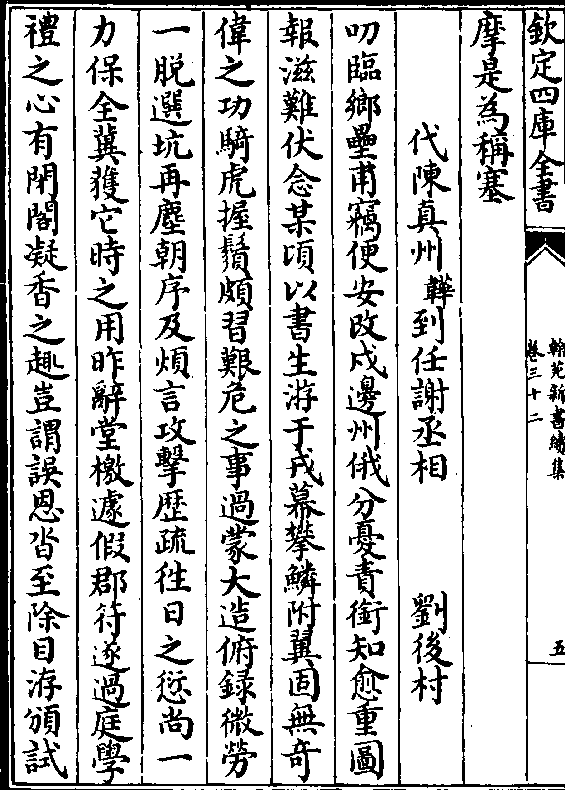 欽定四庫全書
翰苑新書續集
卷三十二
五
摩是為稱塞
代陳真州韡到任謝丞相 劉後村
叨臨鄉壘甫竊便安改戍邊州俄分憂責銜知愈重圖
報滋難伏念某頃以書生游于戎幕攀鱗附翼固無奇
偉之功騎虎握鬚頗習艱危之事過蒙大造俯録微勞
一脱選坑再塵朝序及煩言攻擊歴疏徃日之愆尚一
力保全冀獲它時之用昨辭堂檄遽假郡符遂過庭學
禮之心有閉閤凝香之趣豈謂誤恩沓至除目洊頒試